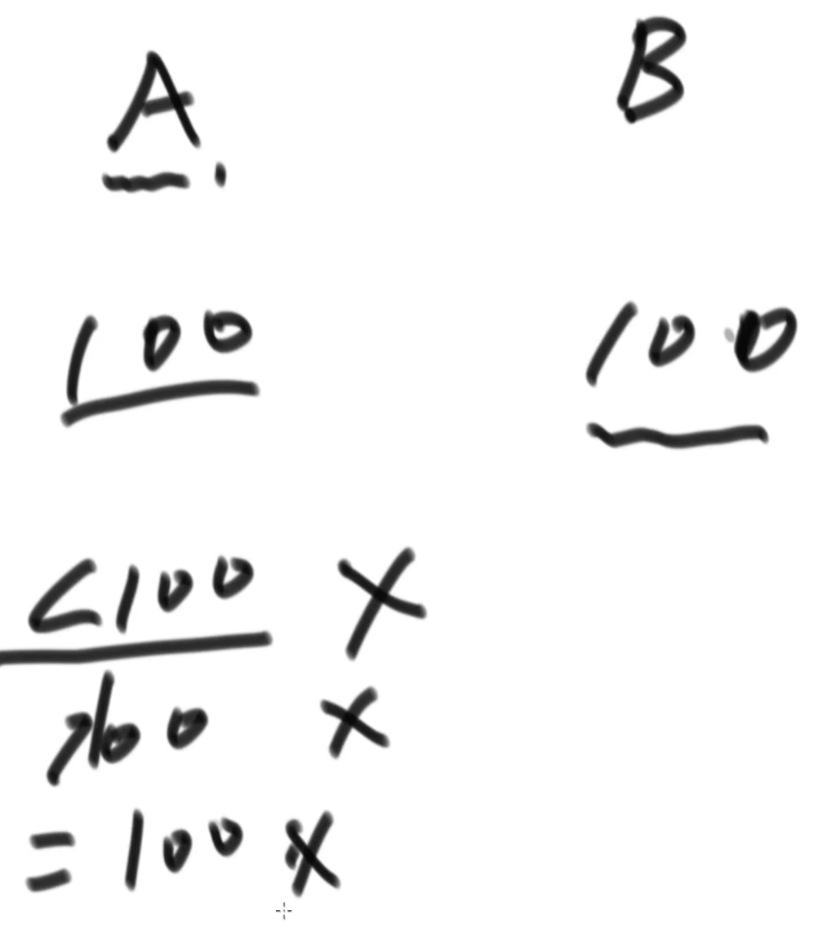 A. B
100 100
<100 X
>100 X
= 100 X